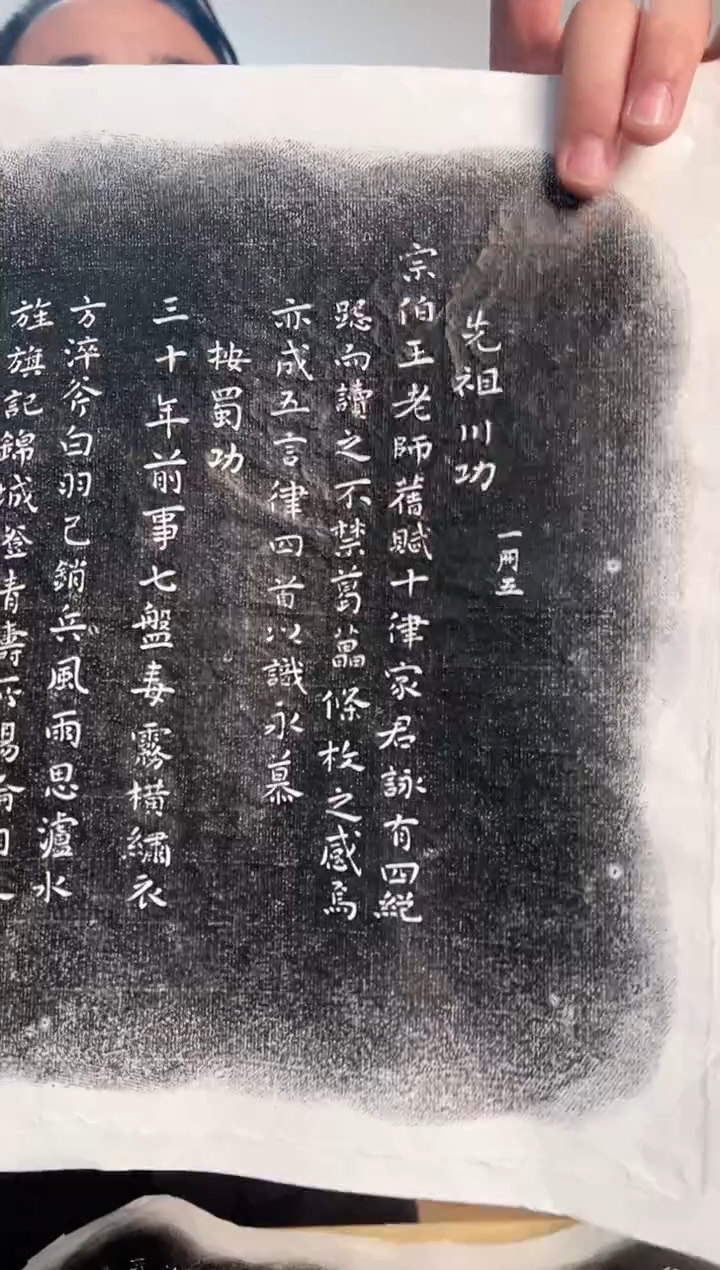 一冊五
先祖川功
宗伯王老師舊賦十律家君詠有四絕
跽而讀之不禁葛藟條枚之感焉
亦成五言律四首以識永慕
按蜀功
三十年前事七盤毒霧橫繡衣
方淬斧白羽己銷兵風雨思瀘水
旌旗記錦城